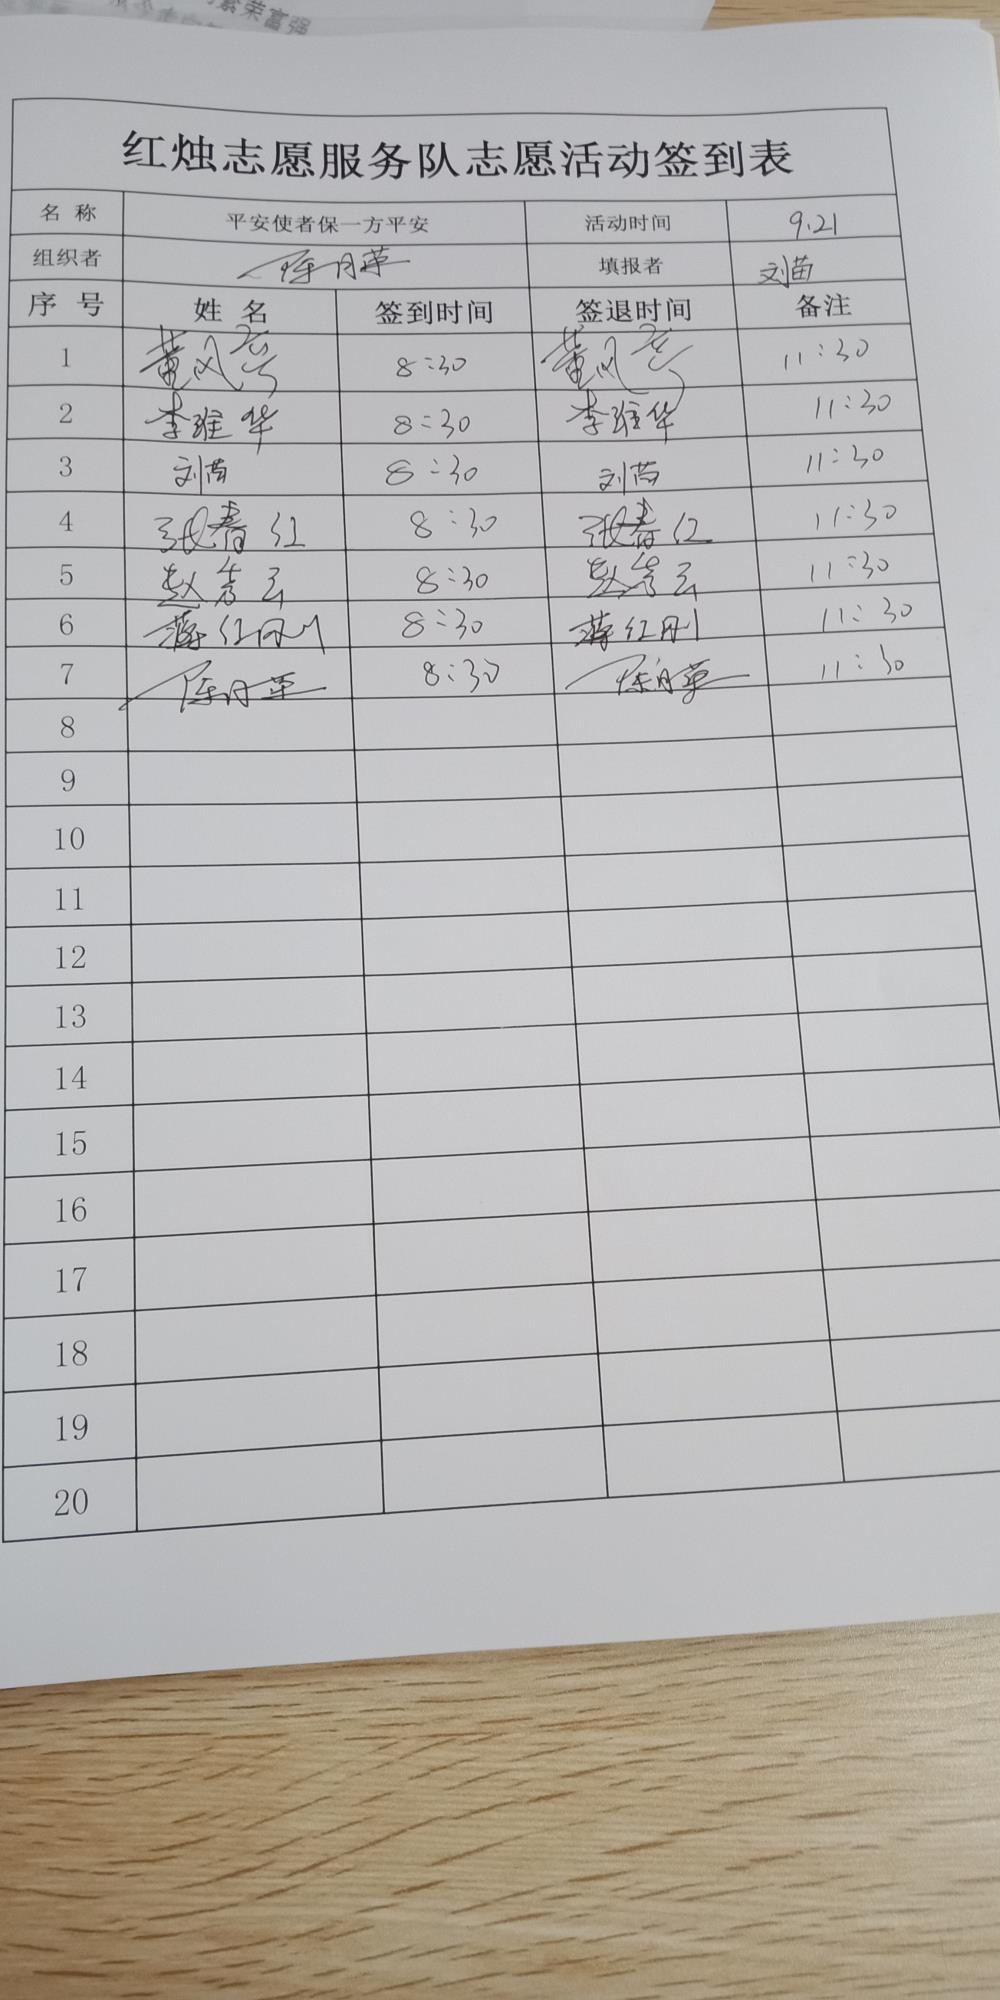 繁荣富强
红烛志愿服务队志愿活动签到表
名 称 平安使者保一方平安 活动时间 9.21
组织者 陈月革 填报者 刘苗
序 号 姓 名 签到时间 签退时间 备注
1 董风 8:30 董风 11:30
2 李维华 8:30 李维华 11:30
3 刘苗 8:30 刘苗 11:30
4 张春红 8:30 张春红 11:30
5 赵 云 8:30 赵 云 11:30
6 蒋红刚 8:30 蒋红刚 11:30
7 陈月革 8:30 陈月革 11:30
8
9
10
11
12
13
14
15
16
17
18
19
20